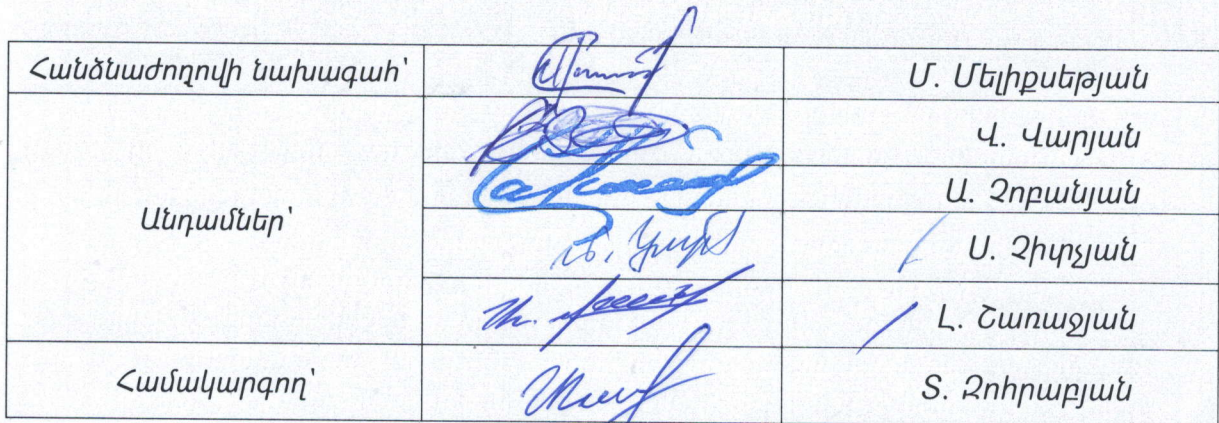 Հանձնաժողովի նախագահ՝ Մ. Մելիքսեթյան
Վ. Վարյան
Ա. Չոբանյան
Անդամներ՝
Ս. Չիրչյան
Լ. Շառաջյան
Համակարգող՝ Տ. Զոհրաբյան